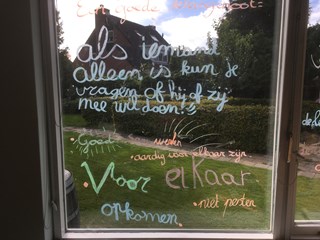 Een goede
als iemand
alleen is kun je
vragen of hij of zij
mee wil doen!
Goed
worden
• aardig voor elkaar zijn
Voor elkaar
opkomen.
• niet pesten